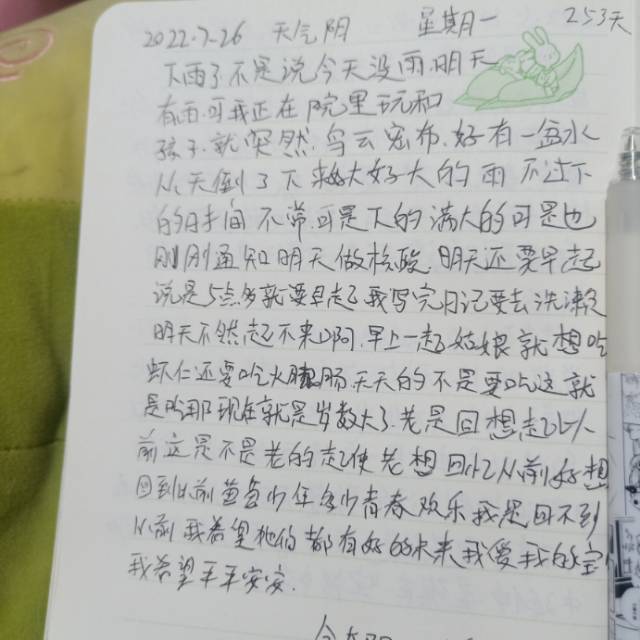 2022.7.26 天气阴 星期一 253天
下雨了不是说今天没雨,明天
有雨,可我正在院里玩和
孩子,就突然,乌云密布,好有一盆水
从天倒了下来好大好大的雨 不过下
的时间不常,可是下的满大的可是也
刚刚通知明天做核酸,明天还要早起
说是5点多就要早起了我写完日记要去洗漱
明天不然起不来啊,早上一起姑娘就想吃
虾仁还要吃火腿肠,天天的不是要吃这就
是吃那现在就是岁数大了,老是回想起以
前这是不是老的起使老想回忆从前好想
回到以前 少年多少青春欢乐我是回不到
从前 我希望他们都有好的未来我爱我的宝
我希望平平安安.